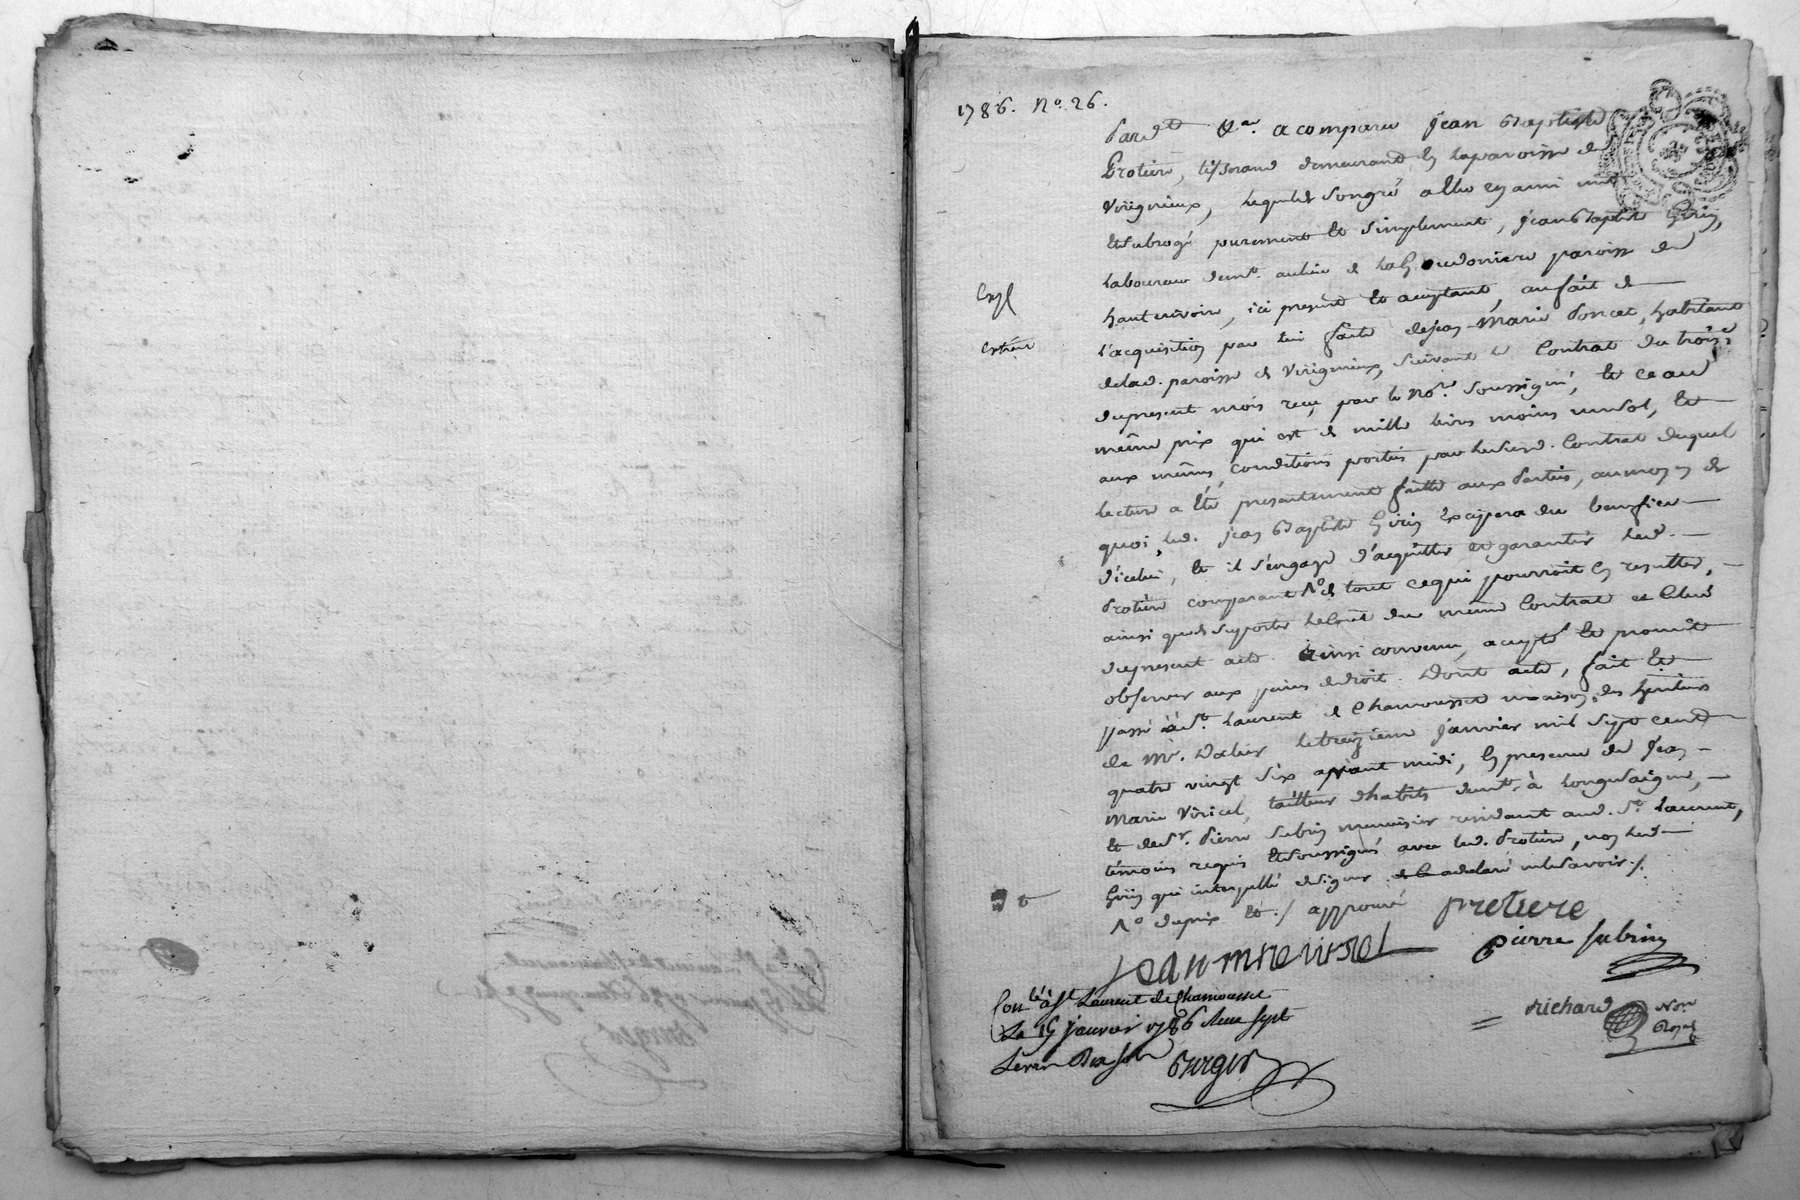 1786. No. 26.
Pardt. Nre. a comparu Jean Baptiste
Protiere, tisserand demeurant en la paroisse de
Virigneux, lequel de son gré a élu en ami mis
et subrogé purement et simplement, Jean Baptiste Girin,
laboureur demt. au lieu de la paroisse de
hauterivoire, ici present et acceptant, au fait de
l'acquisition par lui faite de jean Marie Poncet, habitant
de lad. paroisse de Virigneux, suivant le Contrat du trois
du present mois reçu par le Nore. soussigné, et ce au
même prix qui est de mille livres moins un sol, et
aux mêmes conditions portées par le susd. Contrat duquel
lecture a été presentement faitte aux Parties, au moyen de
quoi, led. jean Baptiste Girin du benefice
d'icelui, et il s'engage d'acquitter et garantir led.
Protiere comparant de tout ce qui pourroit en resulter,
ainsi que de supporter le Cout du même Contrat et celui
du present acte. ainsi convenu, accepté et promis
observer aux peines de droit. Dont acte, fait et
passé à St. Laurent de Chamousset maison des héritiers
de Mr. le treizieme janvier mil sept cent
quatre vingt six avant midi, en presence de Jean
Marie Viricel, tailleur d'habits demt. à Longesaigne,
et de Sr. Pierre Subrin menuisier residant aud. St. Laurent,
témoins requis et soussignés avec led. Protiere, non led.
Girin qui interpellé de signer a declaré ne le savoir./.
approuvé protiere
Jean mrie viricel
pierre subrin
richard Nore
Royal
Conlé à St Laurent de Chamousset
Le 15 janvier 1786 Reçu sept
Livres Dix sols